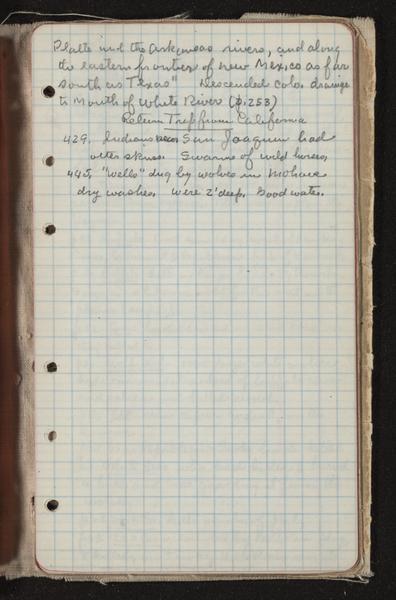 Platte and the Arkansas rivers, and along
the eastern frontier of New Mexico as far
south as Texas" Descended Colo. drainage
to Mouth of White River (p. 253)
Return Trip from California
429. Indians near San Joaquin had
otter skins. Swarms of wild horses,
445, "Wells" dug by wolves in Mohave
dry washes were 2' deep. Good water.